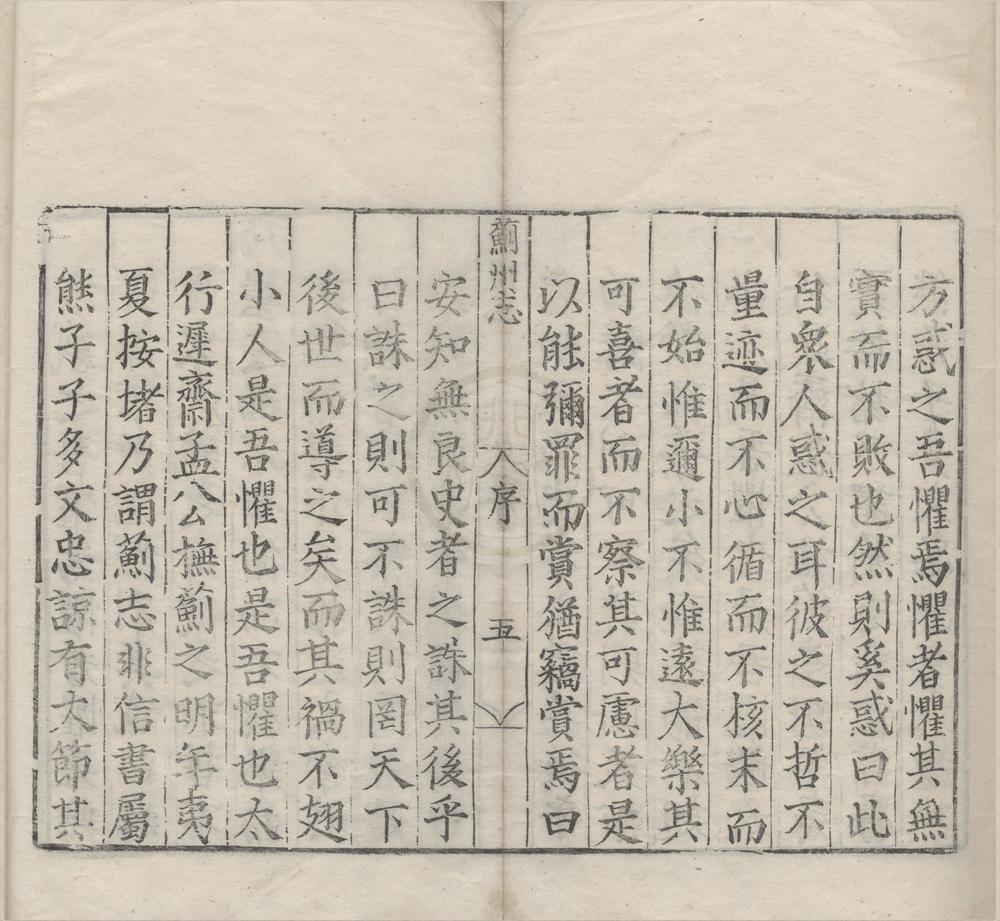 方惑之吾懼焉懼者懼其無
實而不敗也然則奚惑曰此
自衆人惑之耳彼之不哲不
量迹而不心循而不核末而
不始惟邇小不惟遠大樂其
可喜者而不察其可慮者是
以能彌罪而賞猶竊賞焉曰
薊州志
序
五
安知無良史者之誅其後乎
曰誅之則可不誅則罔天下
後世而導之矣而其禍不翅
小人是吾懼也是吾懼也太
行遲齋孟公撫薊之明年夷
夏按堵乃謂薊志非信書屬
熊子子多文忠諒有大節其